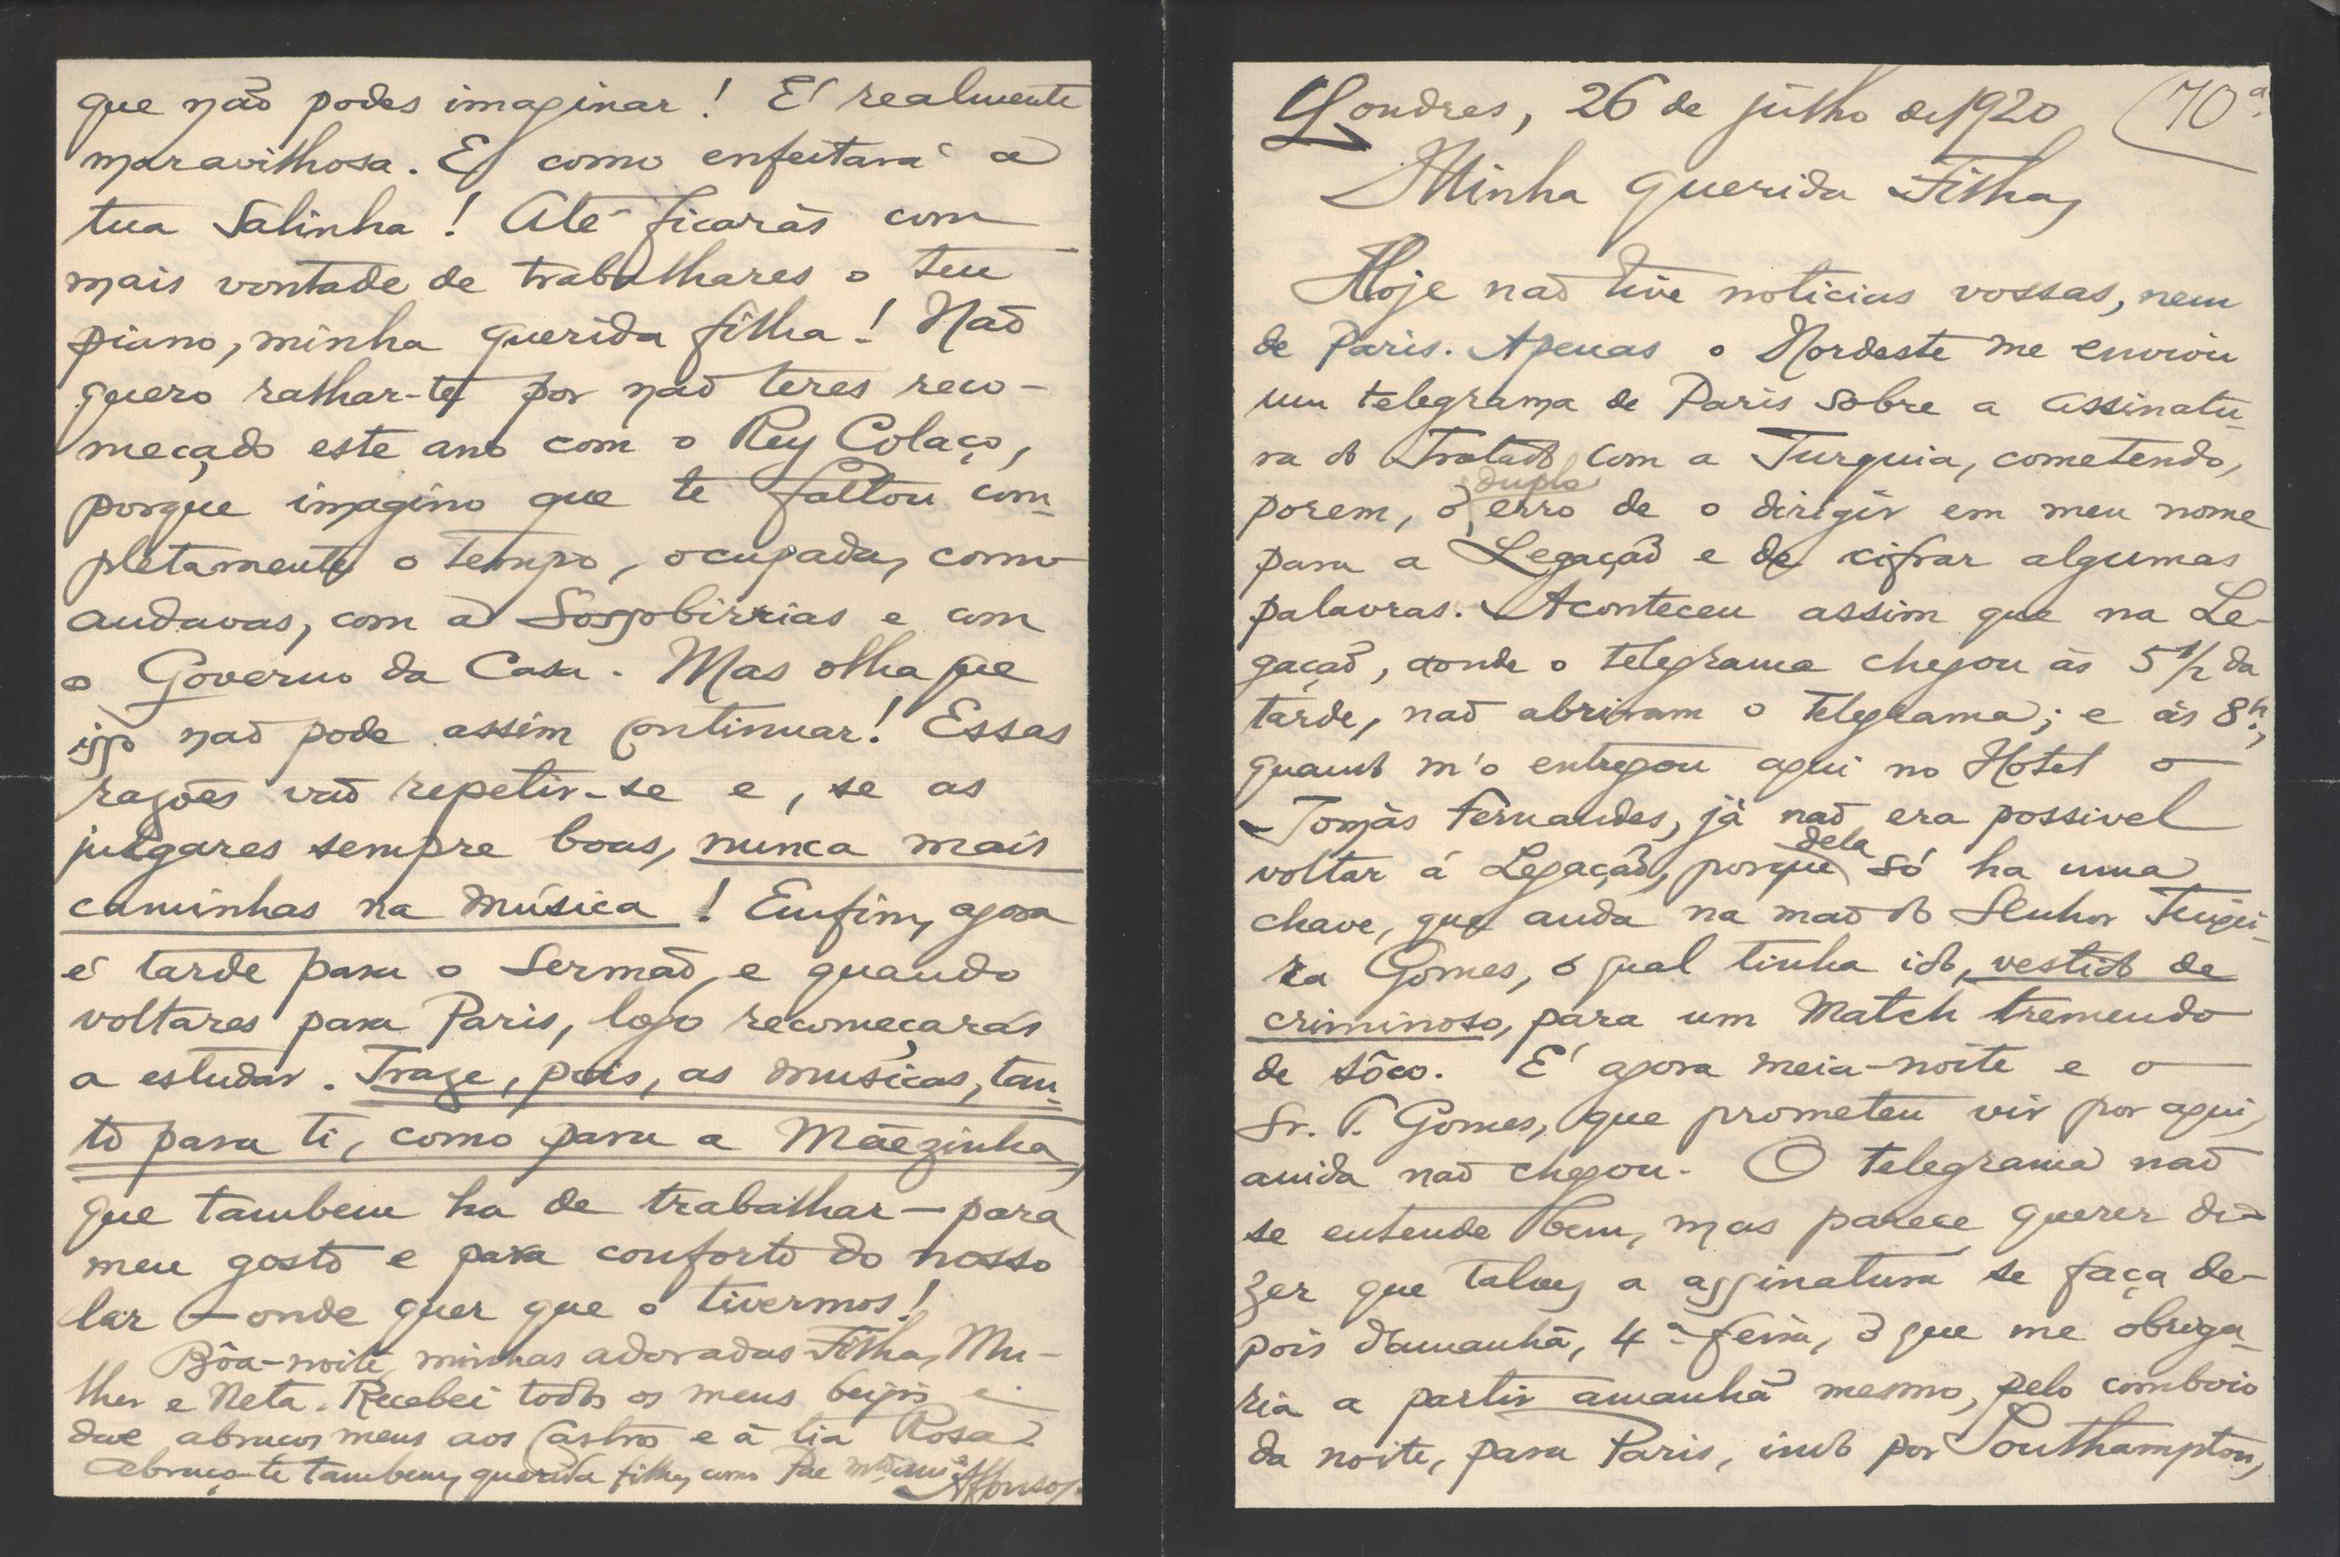 Londres, 26 de julho de 1920 (70ª
Minha querida Filha,
Hoje não tive noticias vossas, nem
de Paris. Apenas o Nordeste me enviou
um telegrama de Paris sobre a assinatu-
ra do Tratado com a Turquia, cometendo,
porem, o duplo erro de o dirigir em meu nome
para a Legação e de cifrar algumas
palavras. Aconteceu assim que na Le-
gação, aonde o telegrama chegou ás 5 1/2 da
tarde, não abriram o telegrama; e ás 8h.,
quando m'o entregou aqui no Hotel o
Tomás Fernandes, já não era possivel
voltar á Legação, porque dela só ha uma
chave, que anda na mão do Senhor Teixei-
ra Gomes, o qual tinha ido, vestido de
criminoso, para um Match tremendo
de sôco. E' agora meia-noite e o
Sr. T. Gomes, que prometeu vir por aqui,
ainda não chegou. O telegrama não
se entende bem, mas parece querer di-
zer que talvez a assinatura se faça de-
pois d'amanhã, 4ª feira, o que me obriga-
ria a partir amanhã mesmo, pelo comboio
da noite, para Paris, indo por Southampton,
que não podes imaginar! E' realmente
maravilhosa. E como enfeitará a
tua Salinha! Até ficarás com
mais vontade de trabalhares o teu
piano, minha querida filha! Não
quero ralhar-te por não teres reco-
meçado este ano com o Rey Colaço,
porque imagino que te faltou com-
pletamente o tempo, ocupada, como
andavas, com a Sospobirrias e com
o Governo da Casa. Mas olha que
isso não pode assim continuar! Essas
razões vão repetir-se e, se as
julgares sempre boas, nunca mais
caminhas na música! Emfim, agora
é tarde para o Sermão, e quando
voltares para Paris, logo recomeçarás
a estudar. Traze, pois, as musicas, tan-
to para ti, como para a Mãezinha,
que tambem ha de trabalhar — para
meu gosto e para conforto do nosso
lar — onde quer que o tivermos!
Bôa-noite, minhas adoradas Filha, Mu-
lher e Neta. Recebei todos os meus beijos e
dae abraços meus aos Castros e á tia Rosa.
Abraço-te tambem, querida filha, como Pae mto. amigo
Affonso.